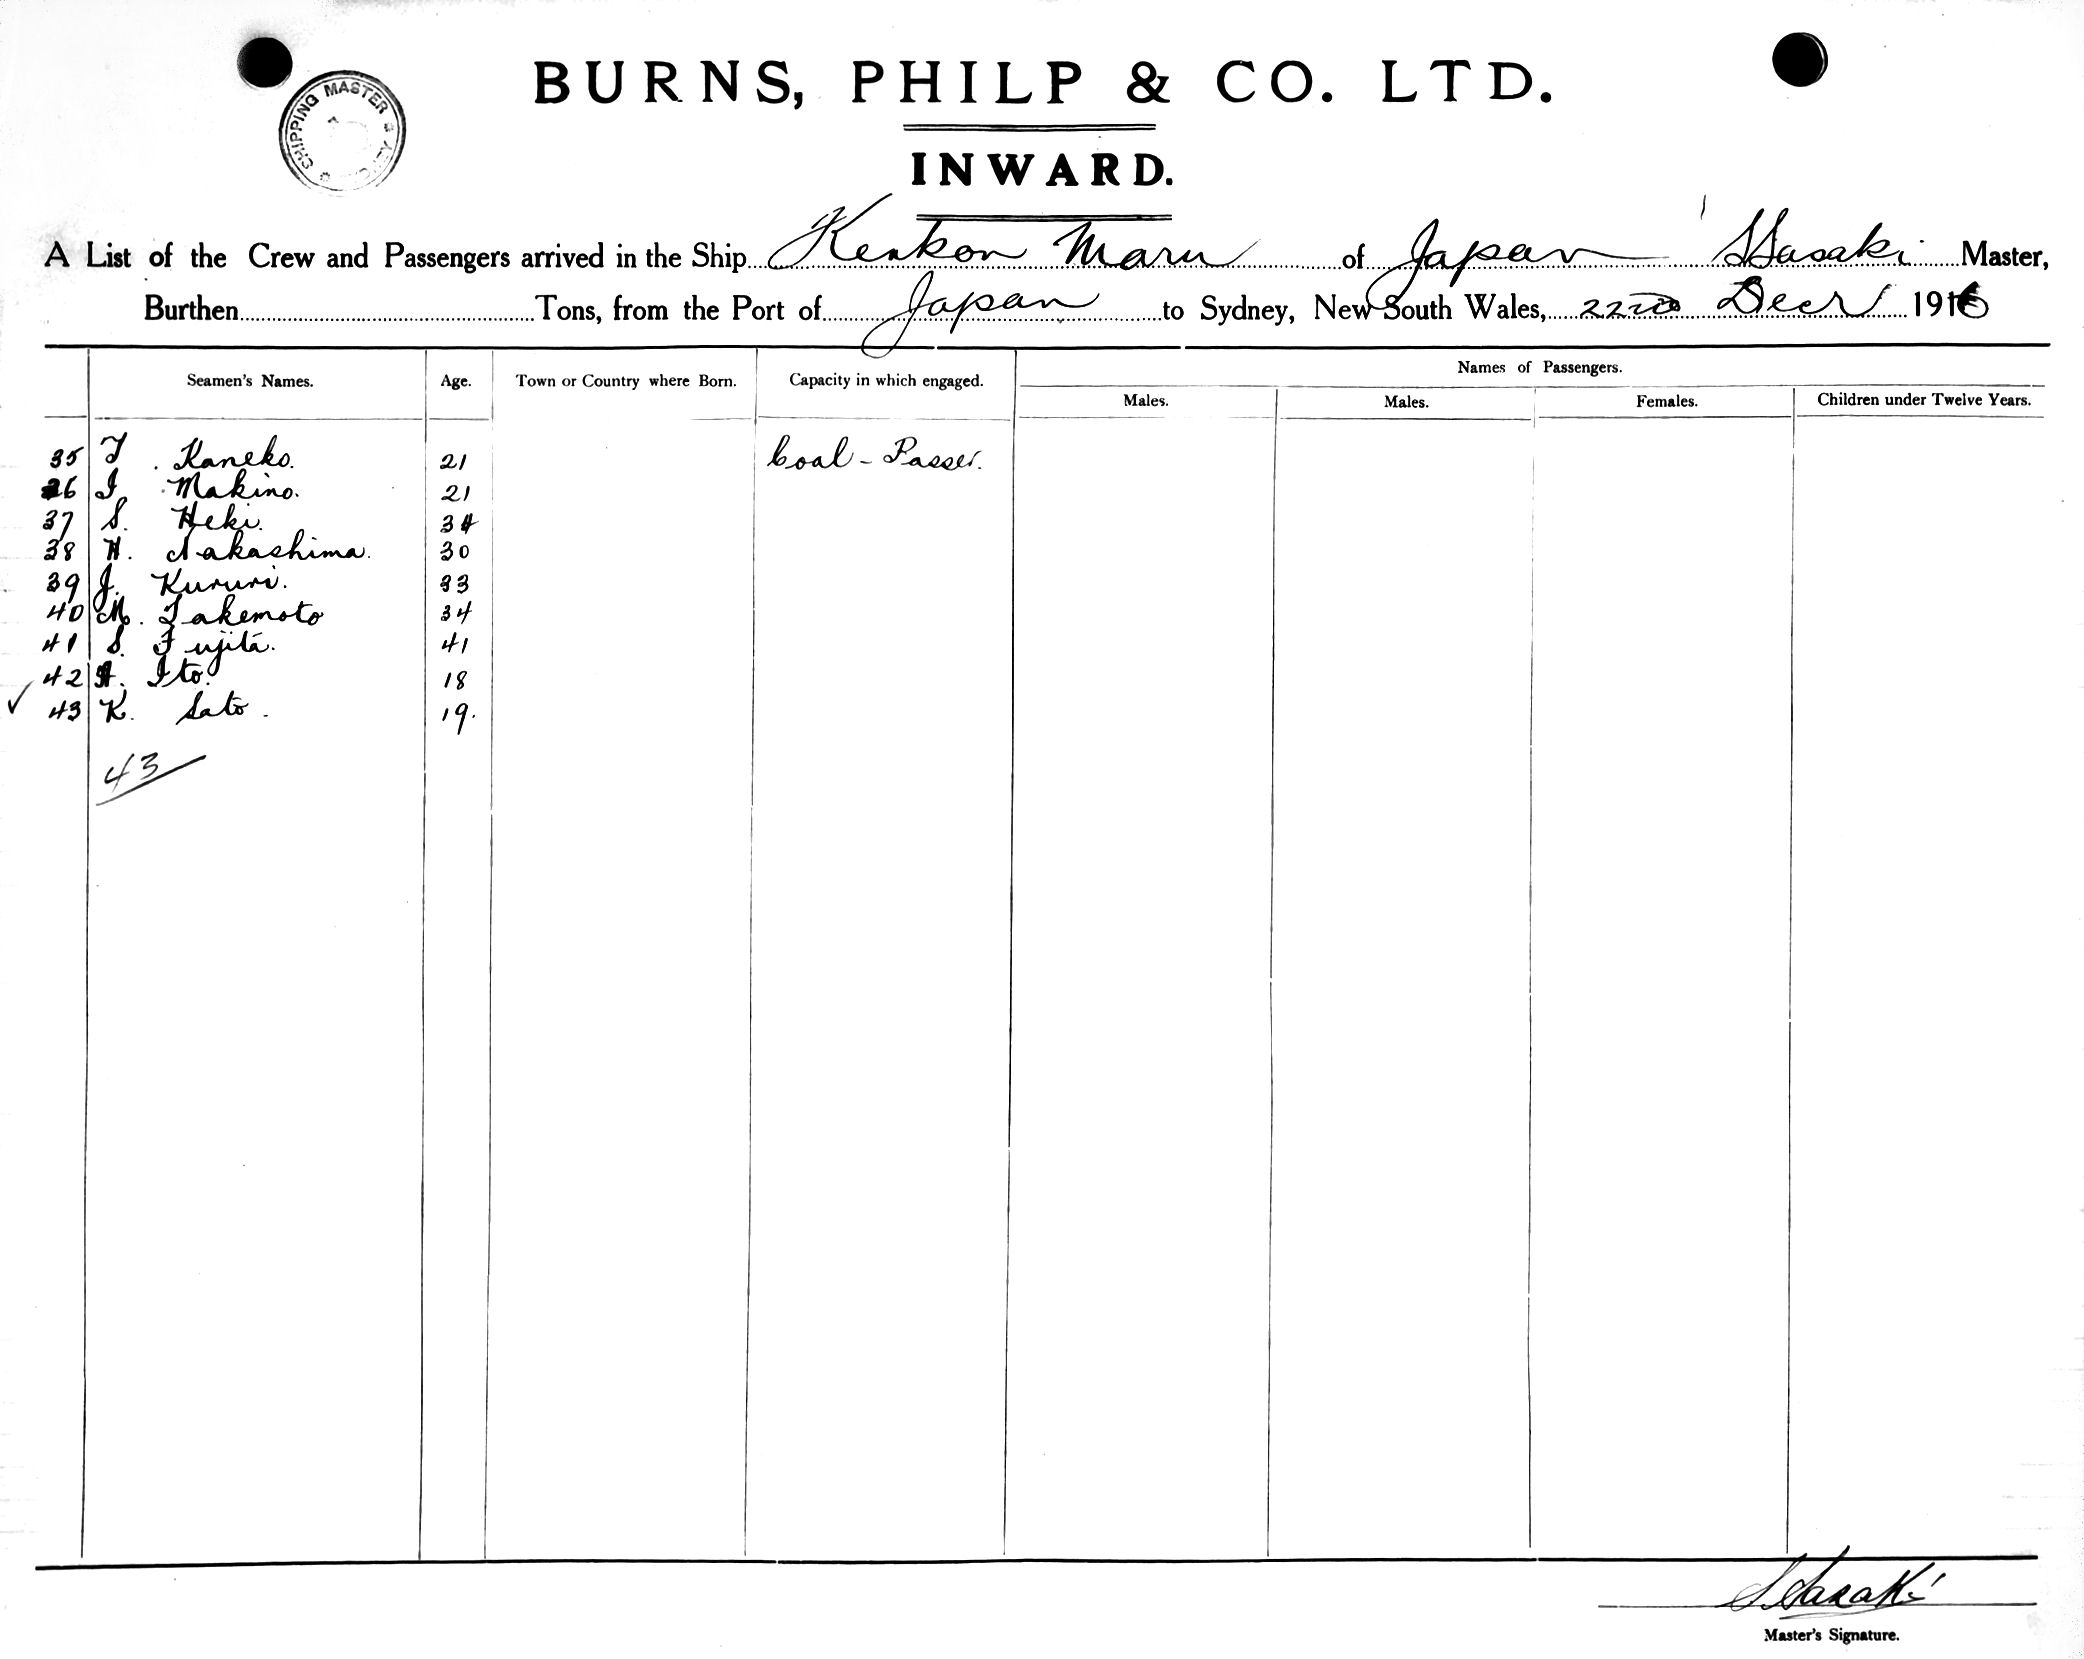 SHIPPING MASTER
BURNS, PHILP & CO. LTD.
INWARD.
A List of the Crew and Passengers arrived in the Ship Kenkon Maru of Japan S Sasaki Master,
Burthen Tons, from the Port of Japan to Sydney, New South Wales, 22nd Decr 1916
Names of Passengers.
Seamen's Names. Age. Town or Country where Born. Capacity in which engaged. Males. Males. Females. Children under Twelve Years.
35 T. Kaneko. 21 Coal-Passer.
36 I Makino. 21
37 S. Heki. 34
38 H. Nakashima. 30
39 J. Kururi. 33
40 M. Takemoto 34
41 S. Fujita. 41
42 H. Ito. 18
43 K. Sato. 19.
43
S Sasaki
Master's Signature.